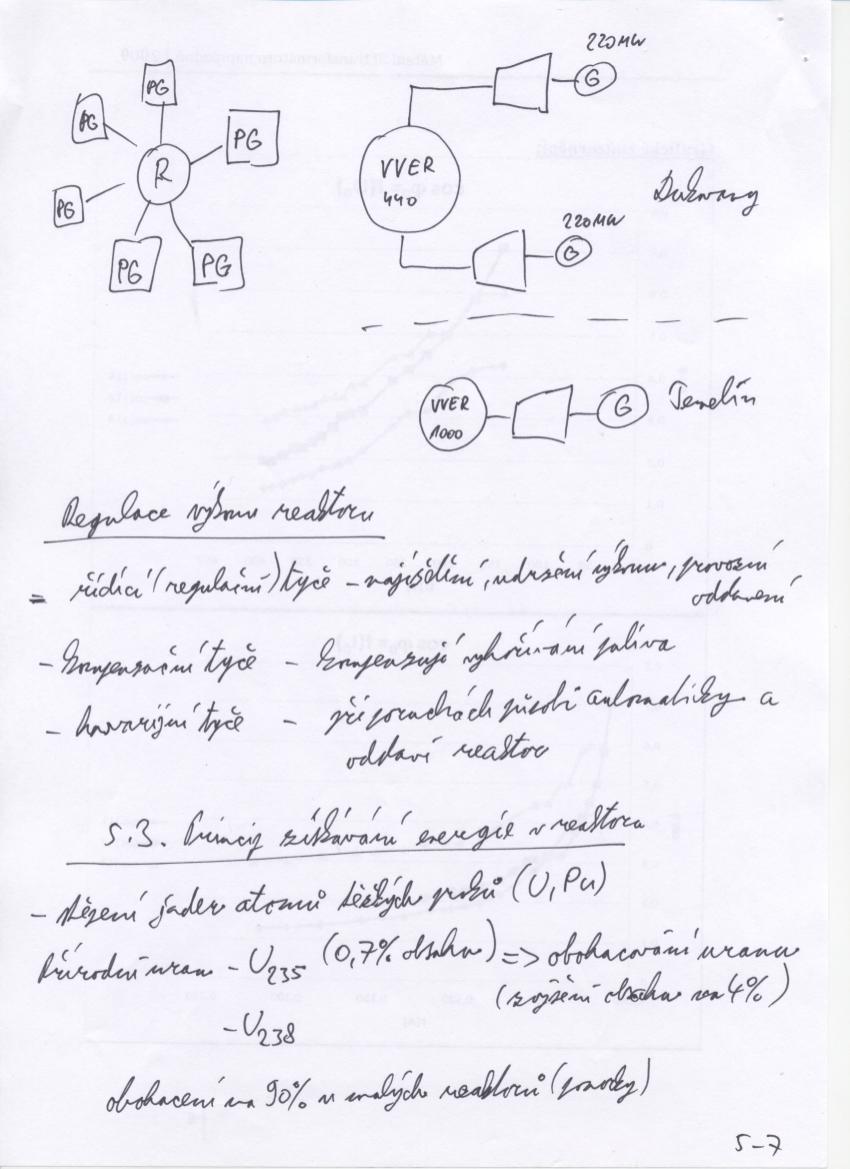 PG
PG
PG
PG
PG
PG
R
VVER
440
220MW
G
220MW
G
Dukovany
VVER
1000
G
Temelín
Regulace výkonu reaktoru
= řídící (regulační) tyče - najíždění, udržení výkonu, provozní
odstavení
- kompenzační tyče - kompenzují vyhořívání paliva
- havarijní tyče - při poruchách působí automaticky a
odstaví reaktor
5.3. Princip získávání energie v reaktoru
- štěpení jader atomů těžkých prvků (U, Pu)
Přírodní uran - U235 (0,7% obsahu) => obohacování uranu
(zvýšení obsahu na 4%)
- U238
obohacení na 90% u malých reaktorů (ponorky)
5-7